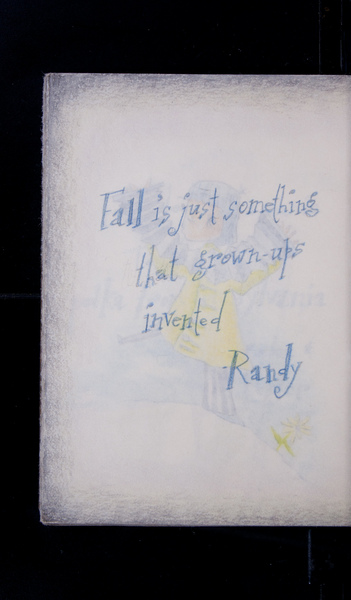 Fall is just something
that grown-ups
invented
-Randy